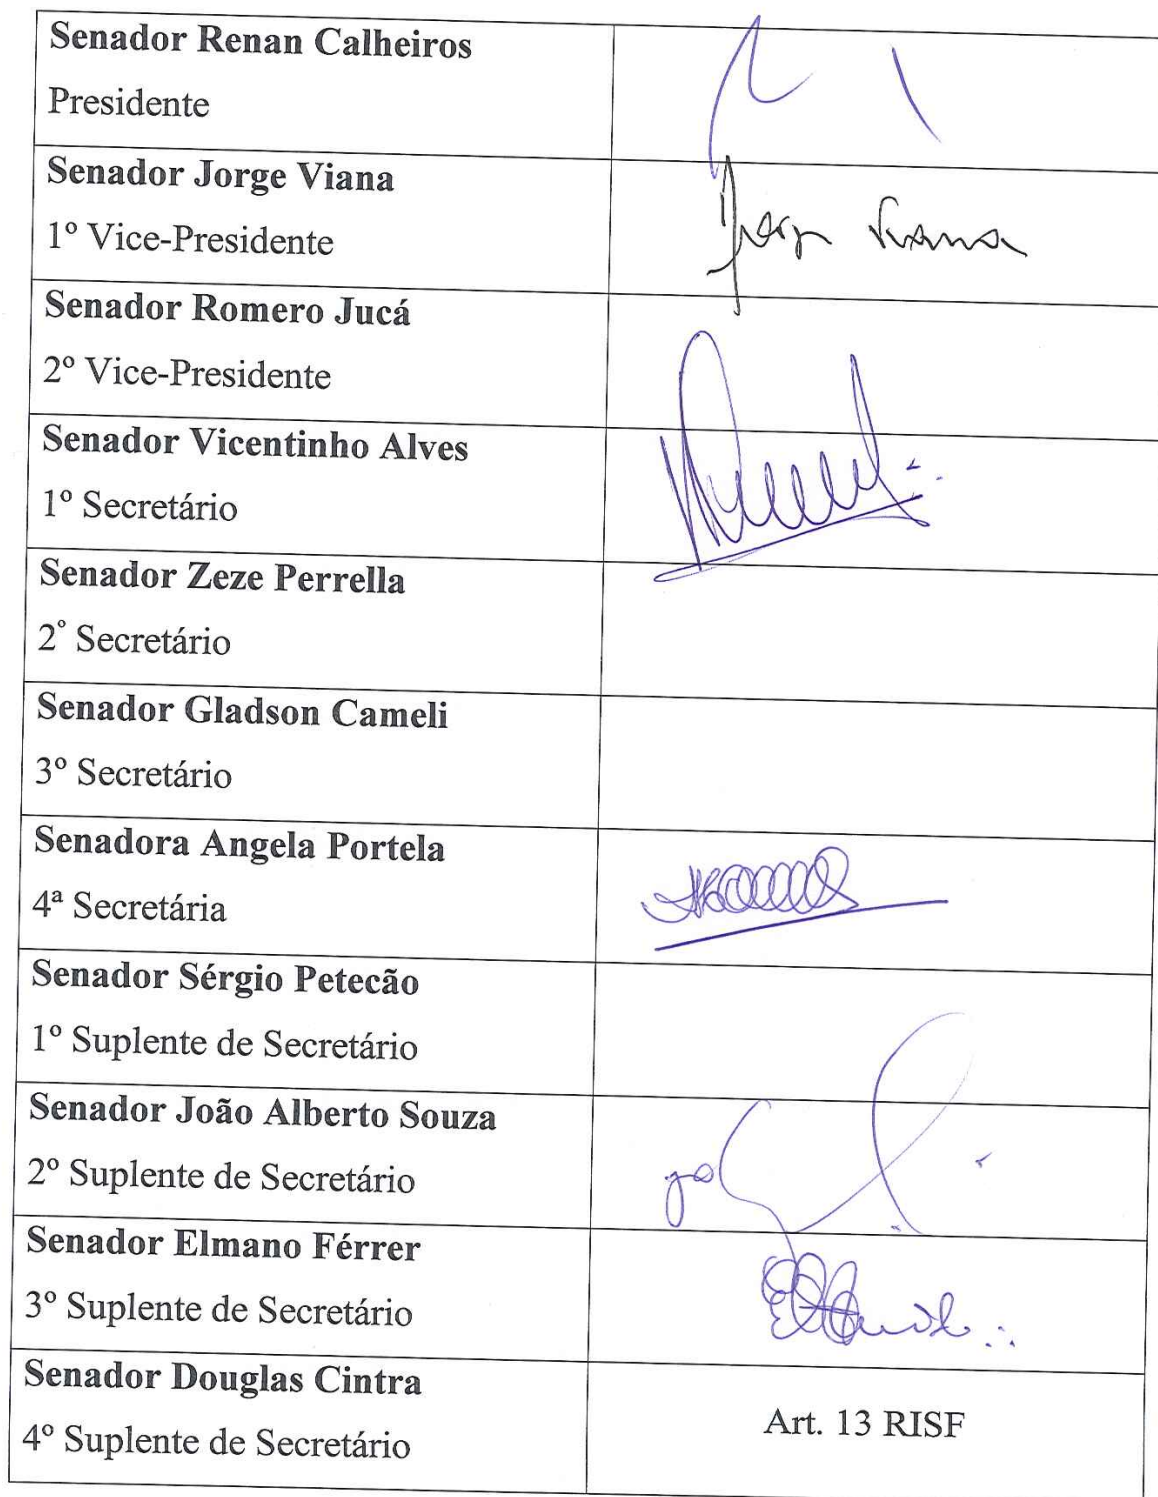 Senador Renan Calheiros
Presidente
Senador Jorge Viana
Jorge Viana
1º Vice-Presidente
Senador Romero Jucá
2º Vice-Presidente
Senador Vicentinho Alves
1º Secretário
Senador Zeze Perrella
2º Secretário
Senador Gladson Cameli
3º Secretário
Senadora Angela Portela
4ª Secretária
Senador Sérgio Petecão
1º Suplente de Secretário
Senador João Alberto Souza
2º Suplente de Secretário
Senador Elmano Férrer
3º Suplente de Secretário
Senador Douglas Cintra
4º Suplente de Secretário
Art. 13 RISF